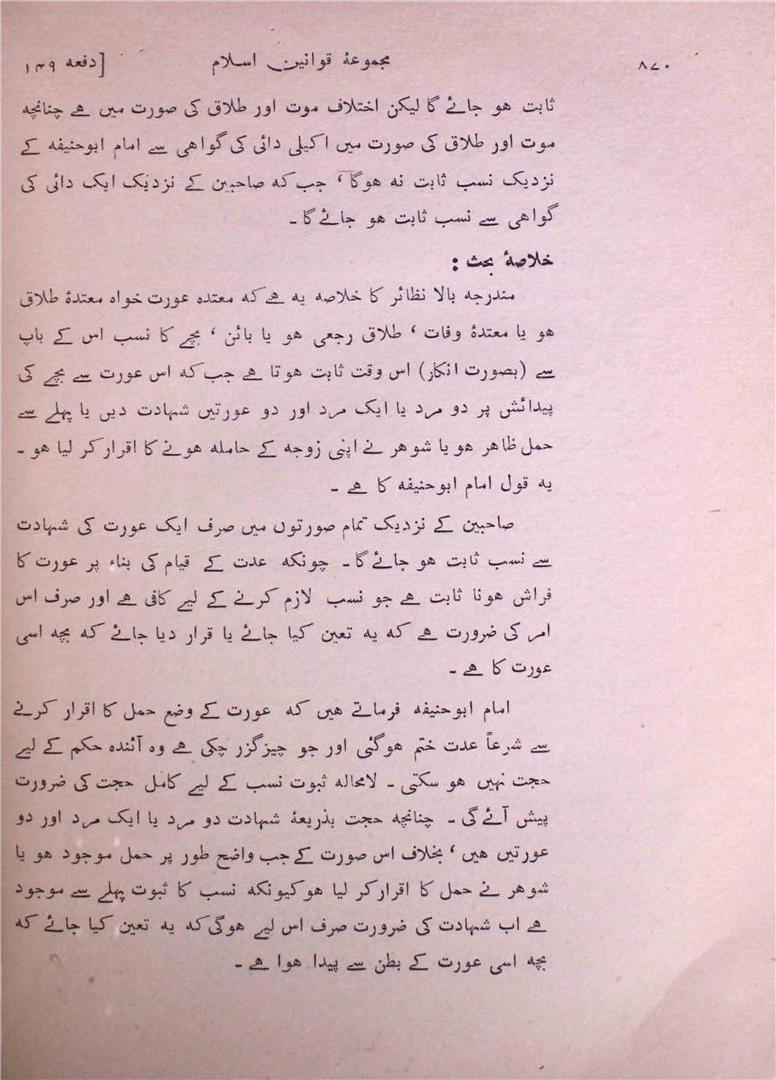 ۸۷۰ مجموعۂ قوانین اسلام [دفعہ ۱۴۹
ثابت ہو جائے گا لیکن اختلاف موت اور طلاق کی صورت میں ہے چنانچہ
موت اور طلاق کی صورت میں اکیلی دائی کی گواہی سے امام ابوحنیفہ کے
نزدیک نسب ثابت نہ ہوگا، جب کہ صاحبین کے نزدیک ایک دائی کی
گواہی سے نسب ثابت ہو جائے گا۔
خلاصۂ بحث :
مندرجہ بالا نظائر کا خلاصہ یہ ہے کہ معتدہ عورت خواہ معتدۂ طلاق
ہو یا معتدۂ وفات، طلاق رجعی ہو یا بائن، بچے کا نسب اس کے باپ
سے (بصورت انکار) اس وقت ثابت ہوتا ہے جب کہ اس عورت سے بچے کی
پیدائش پر دو مرد یا ایک مرد اور دو عورتیں شہادت دیں یا پہلے سے
حمل ظاہر ہو یا شوہر نے اپنی زوجہ کے حاملہ ہونے کا اقرار کر لیا ہو۔
یہ قول امام ابوحنیفہ کا ہے۔
صاحبین کے نزدیک تمام صورتوں میں صرف ایک عورت کی شہادت
سے نسب ثابت ہو جائے گا۔ چونکہ عدت کے قیام کی بناء پر عورت کا
فراش ہونا ثابت ہے جو نسب لازم کرنے کے لیے کافی ہے اور صرف اس
امر کی ضرورت ہے کہ یہ تعین کیا جائے یا قرار دیا جائے کہ بچہ اسی
عورت کا ہے۔
امام ابوحنیفہ فرماتے ہیں کہ عورت کے وضع حمل کا اقرار کرنے
سے شرعاً عدت ختم ہوگئی اور جو چیز گزر چکی ہے وہ آئندہ حکم کے لیے
حجت نہیں ہو سکتی۔ لامحالہ ثبوت نسب کے لیے کامل حجت کی ضرورت
پیش آئے گی۔ چنانچہ حجت بذریعۂ شہادت دو مرد یا ایک مرد اور دو
عورتیں ہیں، بخلاف اس صورت کے جب واضح طور پر حمل موجود ہو یا
شوہر نے حمل کا اقرار کر لیا ہو کیونکہ نسب کا ثبوت پہلے سے موجود
ہے اب شہادت کی ضرورت صرف اس لیے ہوگی کہ یہ تعین کیا جائے کہ
بچہ اسی عورت کے بطن سے پیدا ہوا ہے۔